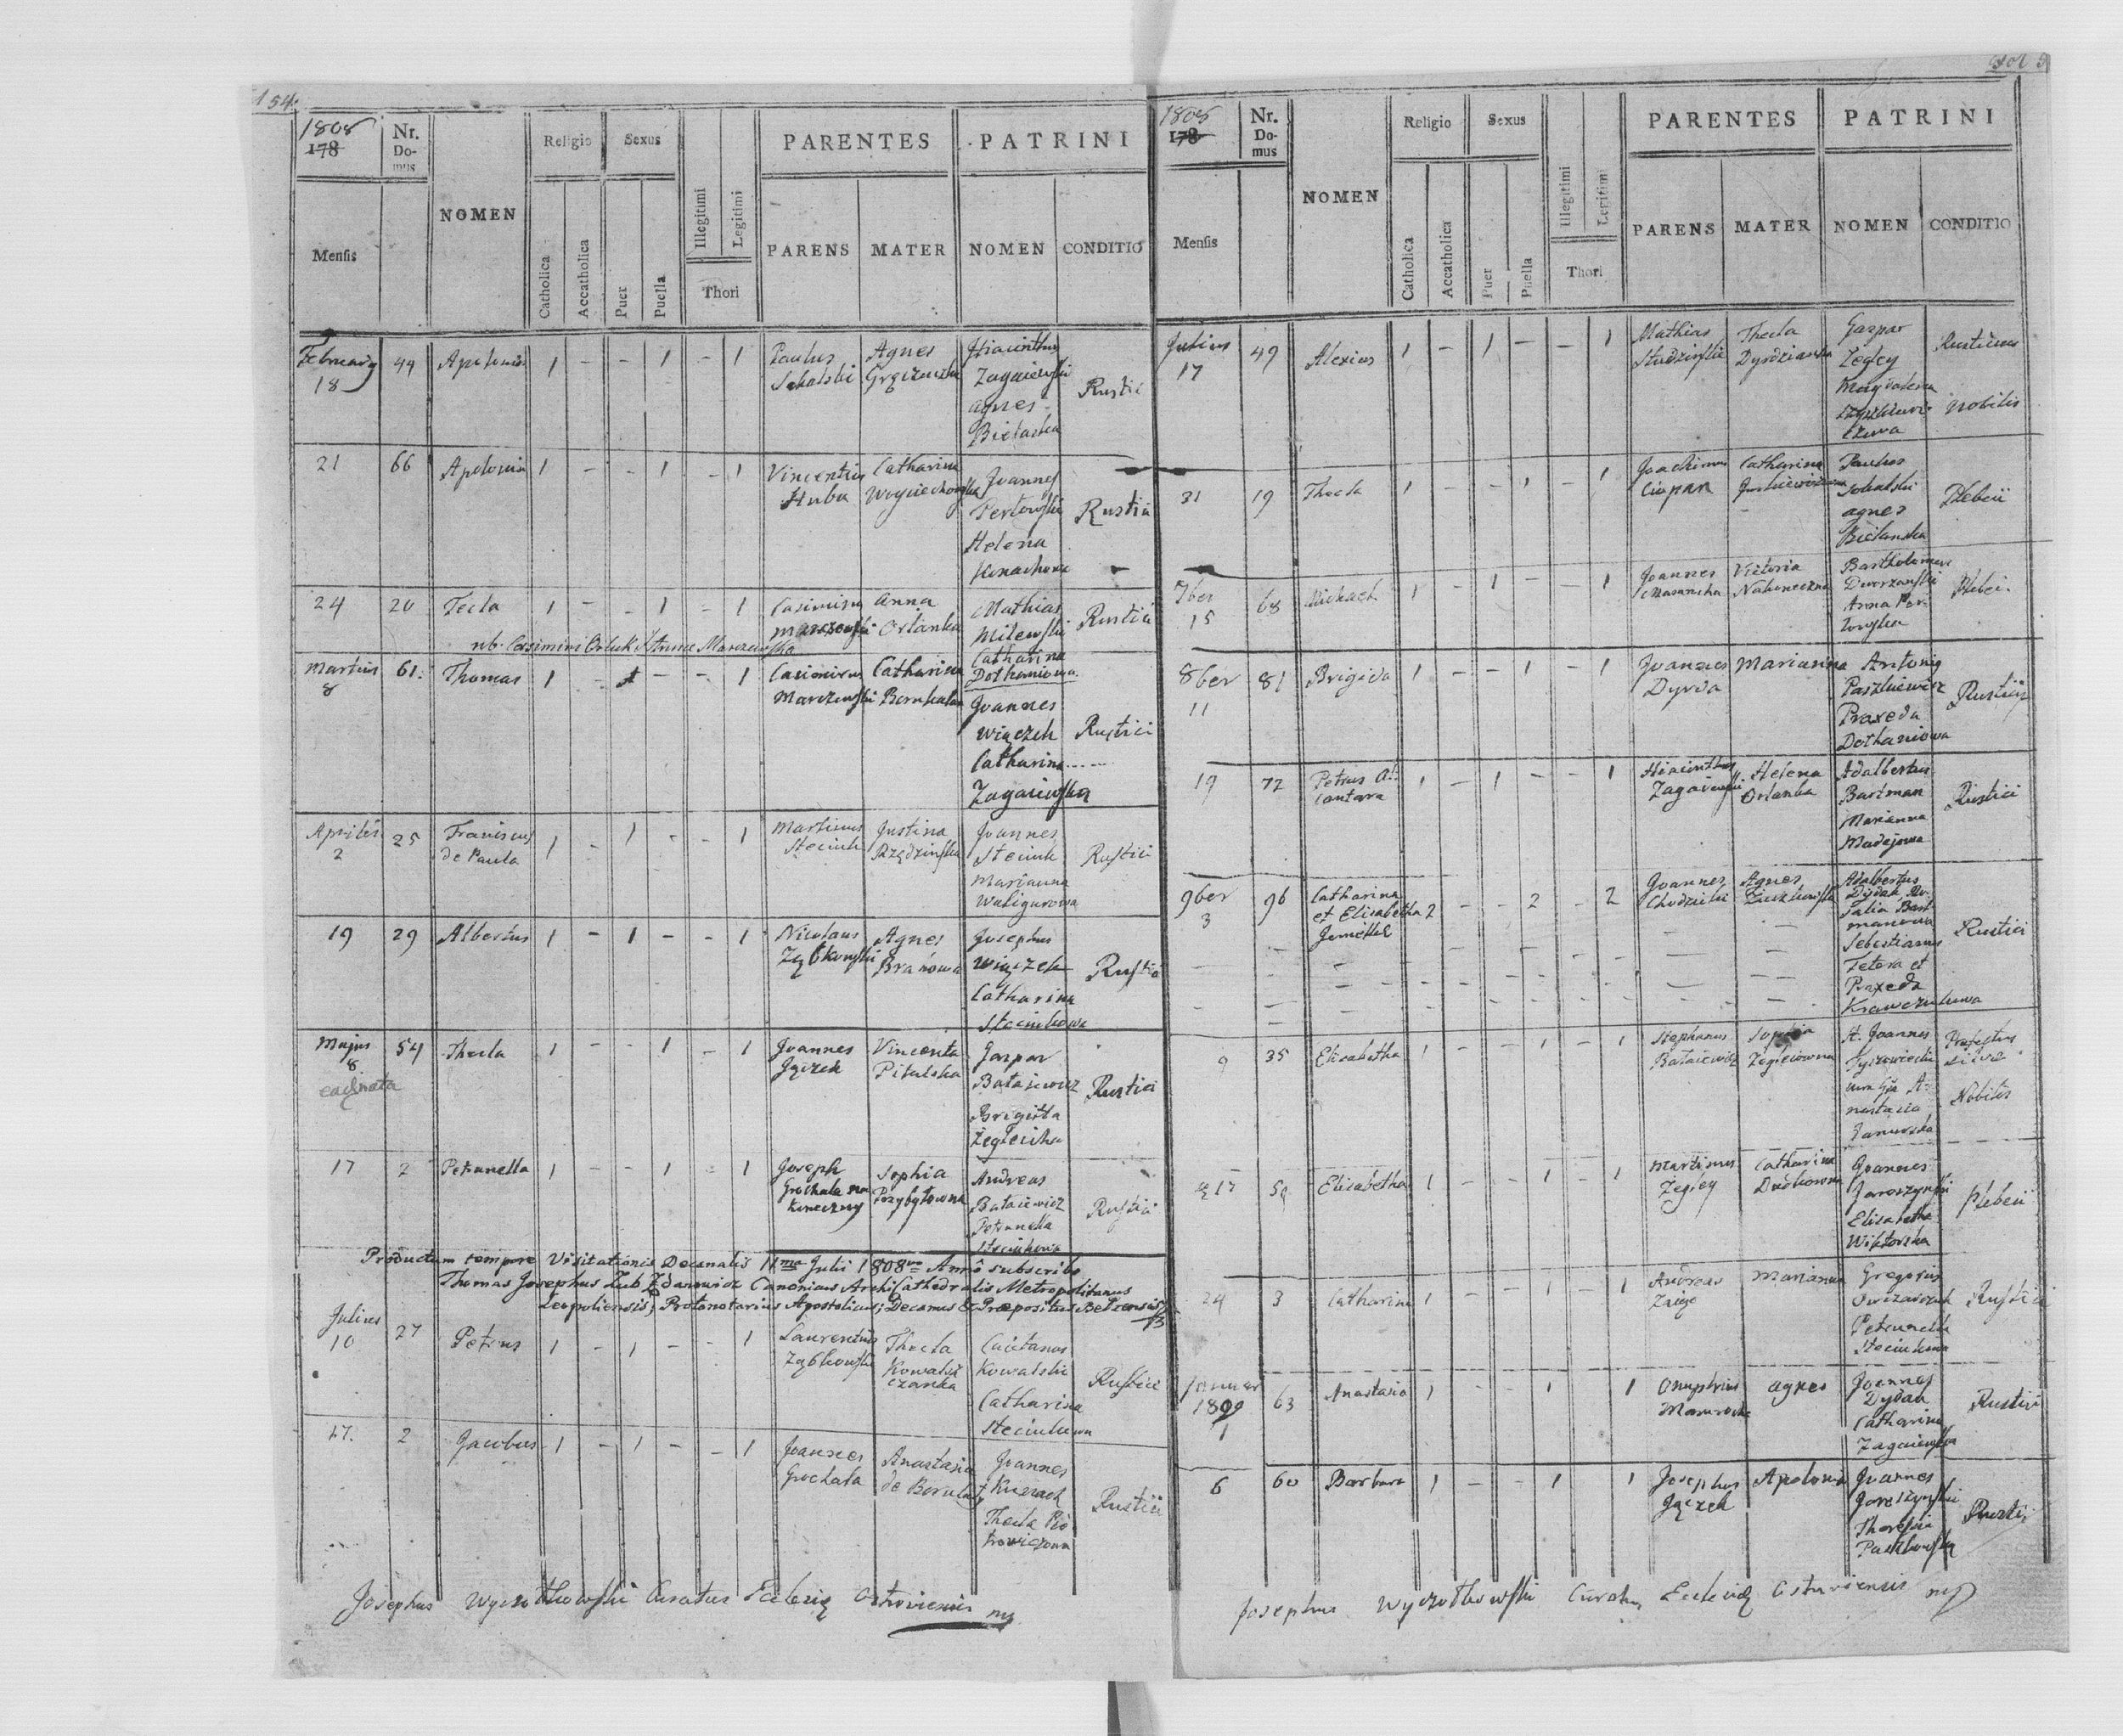 54.
1808
178
Nr. Domus
NOMEN
Religio
Sexus
PARENTES
PATRINI
Mensis
Catholica
Accatholica
Puer
Puella
Illegitimi
Legitimi
Thori
PARENS
MATER
NOMEN
CONDITIO
February 18 44 Apolonia 1 - - 1 - 1 Paulus Sokalski Agnes Hiacinthus Zagaiewski Agnes Bielaska Rustici
21 66 Apolonia 1 - - 1 - 1 Vincentius Huba Catharina Woyciechowska Joannes Pertowski Helena Rustici
24 20 Tecla 1 - - 1 - 1 Casimirus Marczewski Anna Orlanka Mathias Milewski Catharina Dothaniowa Rustici
nb. Casimiri Orluk & Annae Marczewska
Martius 8 61. Thomas 1 - 1 - - 1 Casimirus Marczewski Catharina Joannes Wiączek Catharina Zagaiewska Rustici
Aprilis 2 25 Franciscus de Paula 1 - 1 - - 1 Martinus Steciuk Justina Rządzinska Joannes Steciuk Marianna Waligurowa Rustici
19 29 Albertus 1 - 1 - - 1 Nicolaus Ząbkowski Agnes Branowa Josephus Wiączek Catharina Steciukowa Rustici
Majus 8 54 Thecla 1 - - 1 - 1 Joannes Jączek Vincenta Pitulska Gaspar Batasiewicz Brigitta Zeglecika Rustici
eadnata
17 2 Petrunella 1 - - 1 - 1 Joseph Grochala na koneczny Sophia Przybytowna Andreas Bataiewicz Petrunella Steciukowa Rustici
Productum tempore Visitationis Decanalis 11ma Julii 1808vo Anno subscribo
Thomas Josephus Zub Zdanowicz Canonicus ArchiCathedralis Metropolitanus
Leopoliensis, Protonotarius Apostolicus, Decanus & Præpositus Betzensis
Julius 10 27 Petrus 1 - 1 - - 1 Laurentius Ząbkowski Thecla Kowalsczanka Caietanus Kowalski Catharina Steciukowa Rustici
17. 2 Jacobus 1 - 1 - - 1 Joannes Grochala Anastasia Joannes Thecla Piotrowiczowa Rustici
Josephus Wyczotkowski Curatus Ecclesię Ostroviensis mp
Fol
1808
178
Nr. Domus
NOMEN
Religio
Sexus
PARENTES
PATRINI
Mensis
Catholica
Accatholica
Puer
Puella
Illegitimi
Legitimi
Thori
PARENS
MATER
NOMEN
CONDITIO
Julius 17 49 Alexius 1 - 1 - - 1 Mathias Studzinski Thecla Gaspar Zegley Magdalena Rusticus Nobilis
31 19 Thecla 1 - - 1 - 1 Joachimus Ciupan Catharina Paulus Sokalski Agnes Bielanska Plebeii
7ber 15 68 Michael 1 - 1 - - 1 Joannes Victoria Bartholomeus Dworzanski Anna Plebei
8ber 11 81 Brigida 1 - - 1 - 1 Joannes Dyrda Marianna Antonius Paszkiewicz Praxeda Dothaniowa Rustici
19 72 Petrus Alcantara 1 - 1 - - 1 Hiacinthus Zagaiewski Helena Orlanka Adalbertus Bartman Marianna Madejowa Rustici
9ber 3 96 Catharina et Elisabetha Gemellæ 2 - - 2 - 2 Joannes Agnes Adalbertus Dydak, Rosalia Bartmanowa Sebestianus Tetera et Praxeda Krawczukowa Rustici
9 35 Elisabetha 1 - - 1 - 1 Stephanus Bataiewicz Sophia Zeglecowna Joannes Anastasia Janurska Prefectus silvæ Nobiles
17 59 Elisabetha 1 - - 1 - 1 Martinus Zegley Catharina Joannes Jaroszynski Elisabetha Wiktorska Plebeii
24 3 Catharina 1 - - 1 - 1 Andreas Marianna Gregorius Owczarczuk Petrunella Steciukowa Rustici
Januar 1809 1 63 Anastasia 1 - - 1 1 Onuphrius Agnes Joannes Dydak Catharina Zagaiewska Rustici
6 60 Barbara 1 - - 1 1 Josephus Jączek Apolonia Joannes Joroszynski Theresia Paszkowska Rustici
Josephus Wyczotkowski Curatus Ecclesię Ostroviensis mp